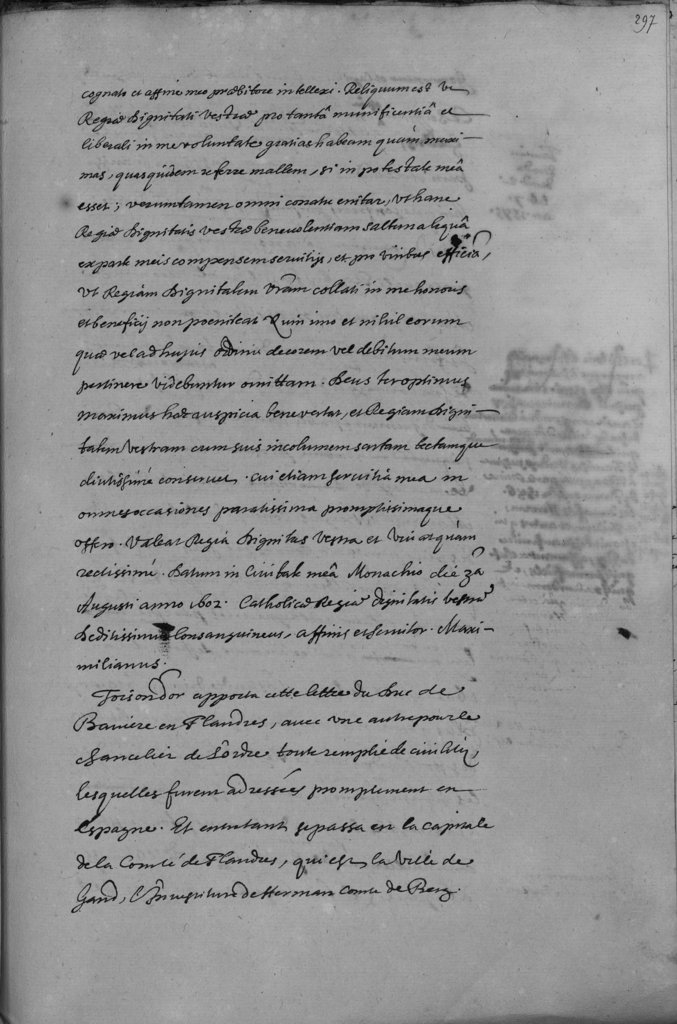 297
cognato et affine meo præbitore intellexi. Reliquum est vt
Regiæ Dignitati Vestræ pro tantâ munificentiâ et
liberali in me voluntate gratias habeam quàm maxi-
mas, quas quidem referre mallem, si in potestate meâ
esset; verumtamen omni conatu enitar, vt hanc
Regiæ Dignitatis Vestræ benevolentiam saltem aliquâ
ex parte meis compensem seruitijs, et pro viribus efficiā,
vt Regiam Dignitatem Vram̄ collati in me honoris
et beneficij non poeniteat Quin imo et nihil eorum
quæ vel ad hujus ordinis decorem vel debitum meum
pertinere videbuntur omittam. Deus ter optimus
maximus hæc auspicia bene vertat, et Regiam Digni-
tatem Vestram cum suis incolumem sartam tectamque
diutissimè conseruet. cui etiam seruitia mea in
omnes occasiones paratissima promptissimaque
offero. Valeat Regia Dignitas Vestra et viuat quàm
rectissimè. Datum in Ciuitate meâ Monachio die 2ā
Augusti anno 1602. Catholicæ Regiæ dignitatis vestræ
Deditissimus Consanguineus, affinis et seruitor. Maxi-
milianus.
Toison d'or apporta cette lettre du Duc de
Bauiere en Flandres, auec vne autre pour le
Chancelier de l'ordre toute remplie de ciuilité,
lesquelles furent adressées promptement en
Espagne. Et entretant se passa en la capitale
de la Comté de Flandres, qui est la Ville de
Gand, l'Inuestiture de Herman Comte de Berg.